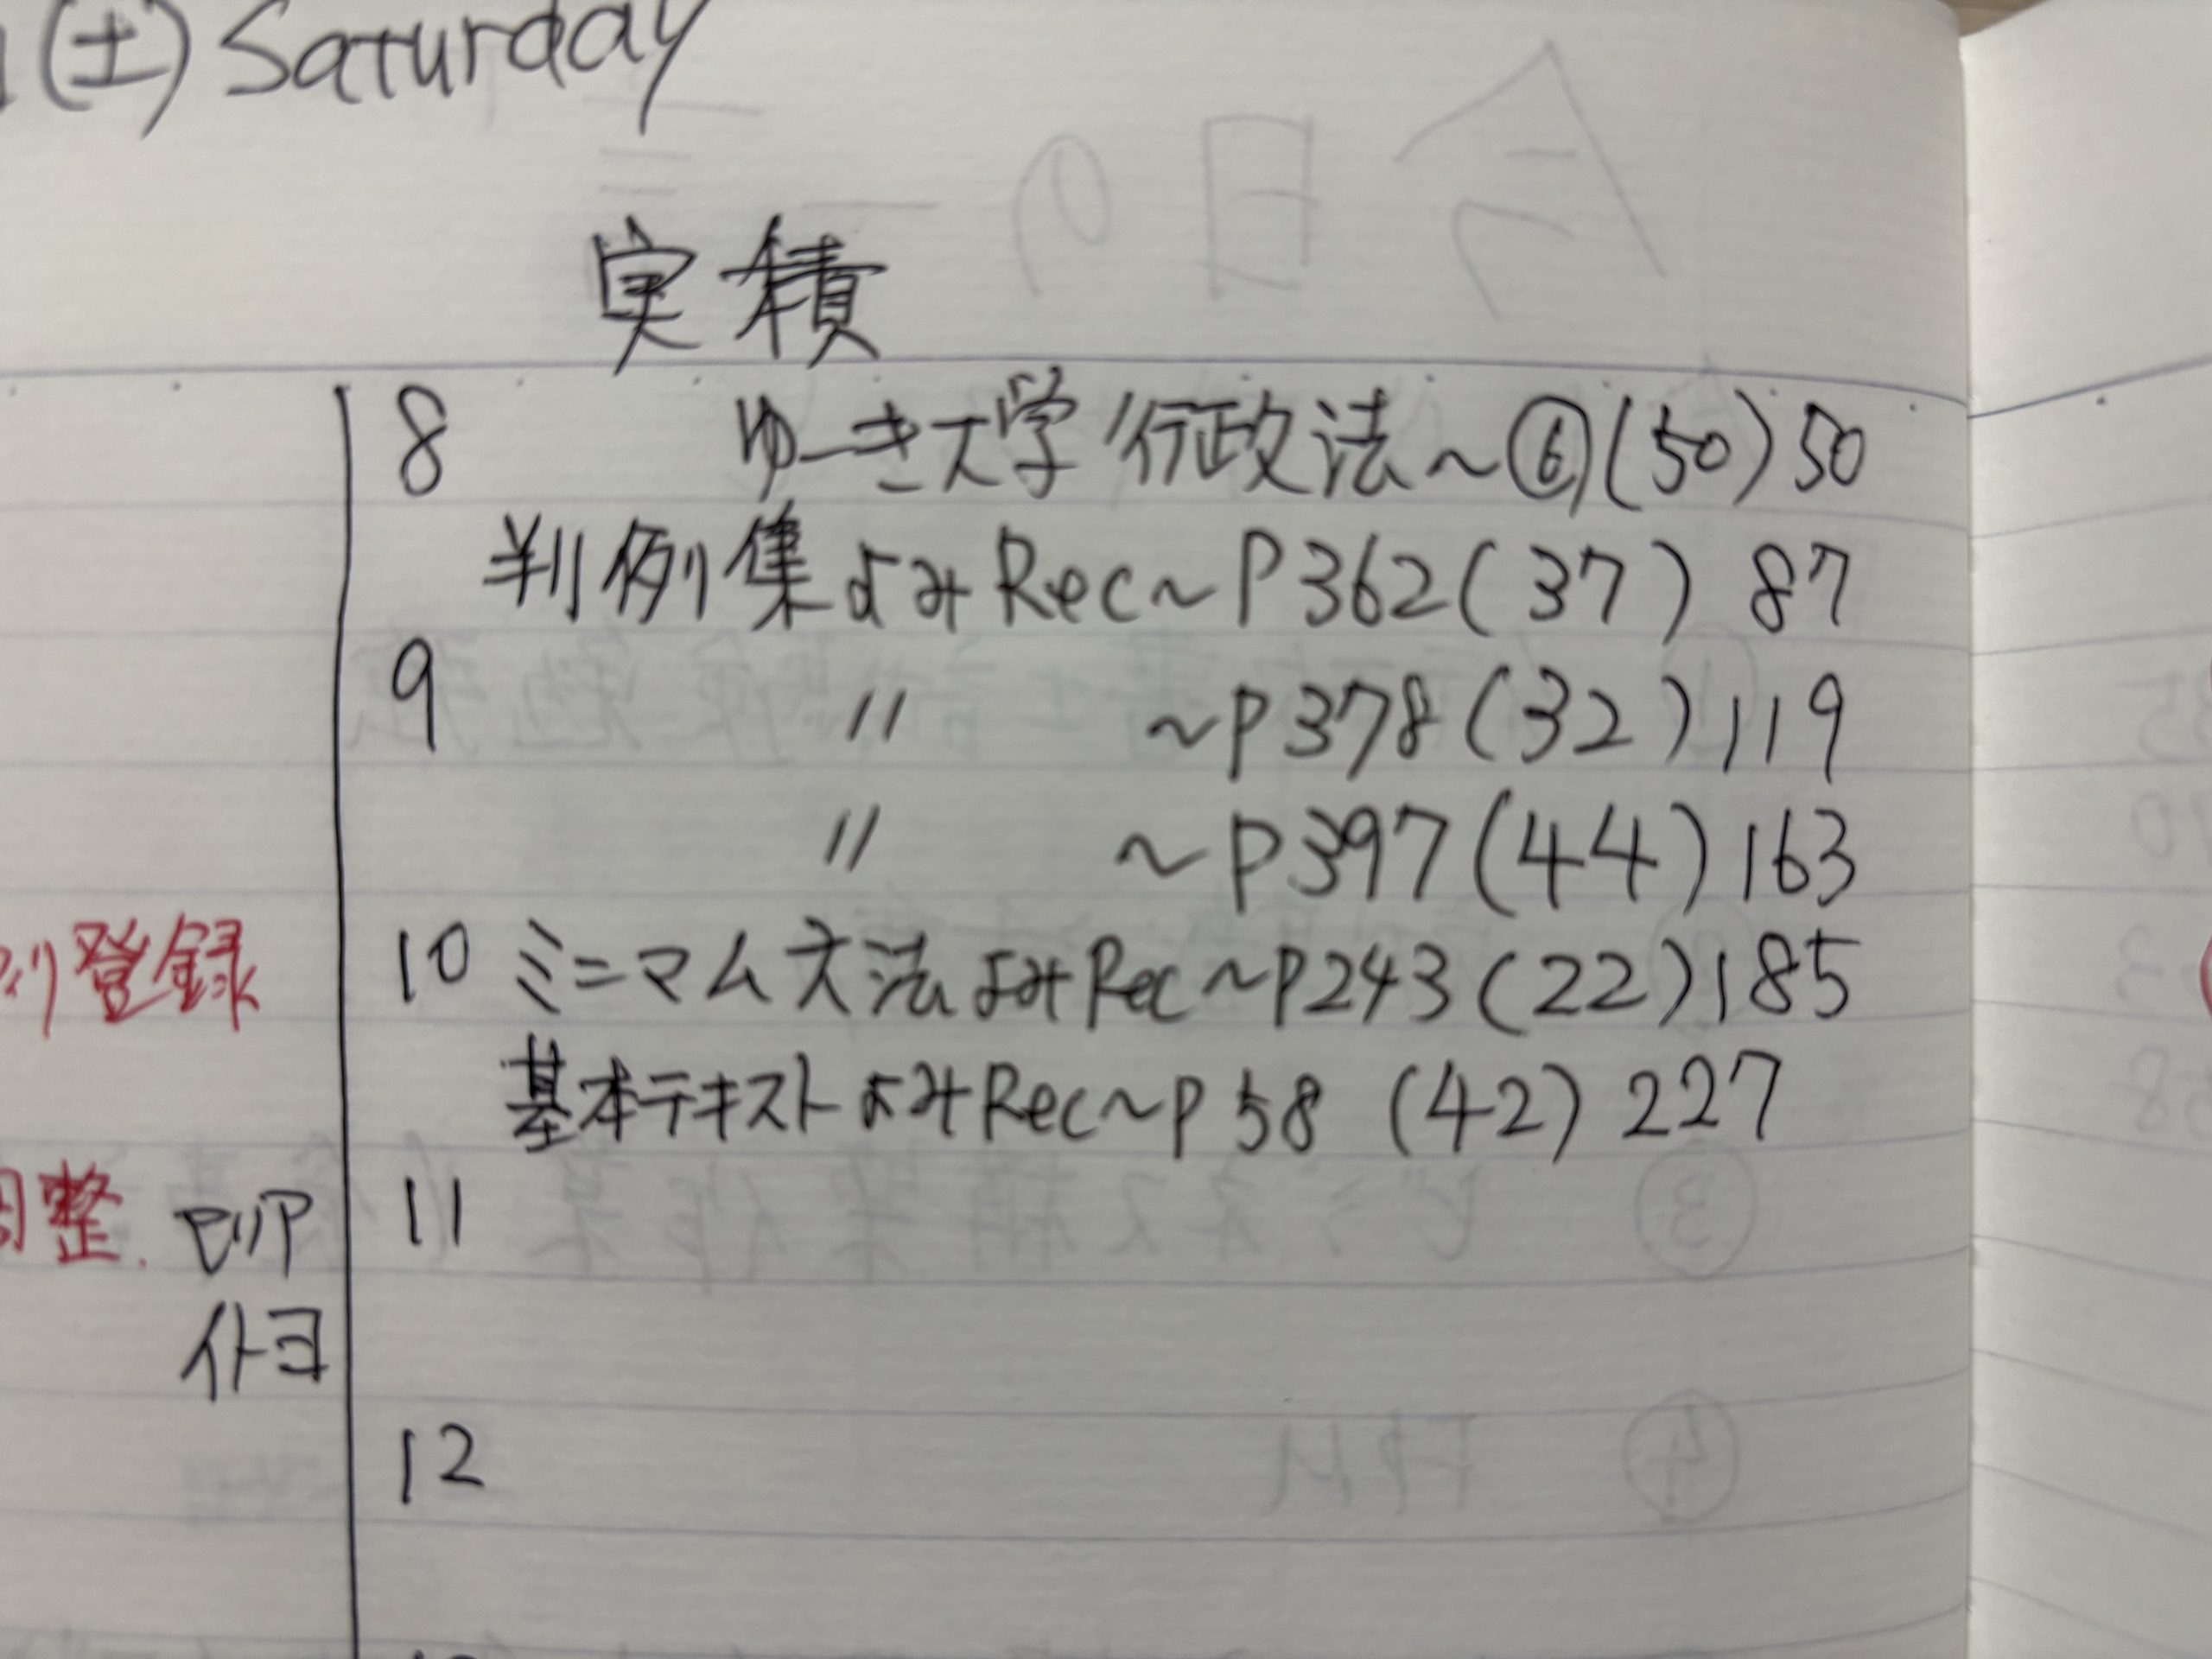 (土) Saturday
実積
8 ゆーき大学 行政法～⑥(50) 50
判例集よみRec～P362(37) 87
9 〃 ～P378(32) 119
〃 ～P397(44) 163
登録 10 ミニマム文法よみRec～P243(22) 185
基本テキストよみRec～P58 (42) 227
調整. セリア 11
イトヨ
12